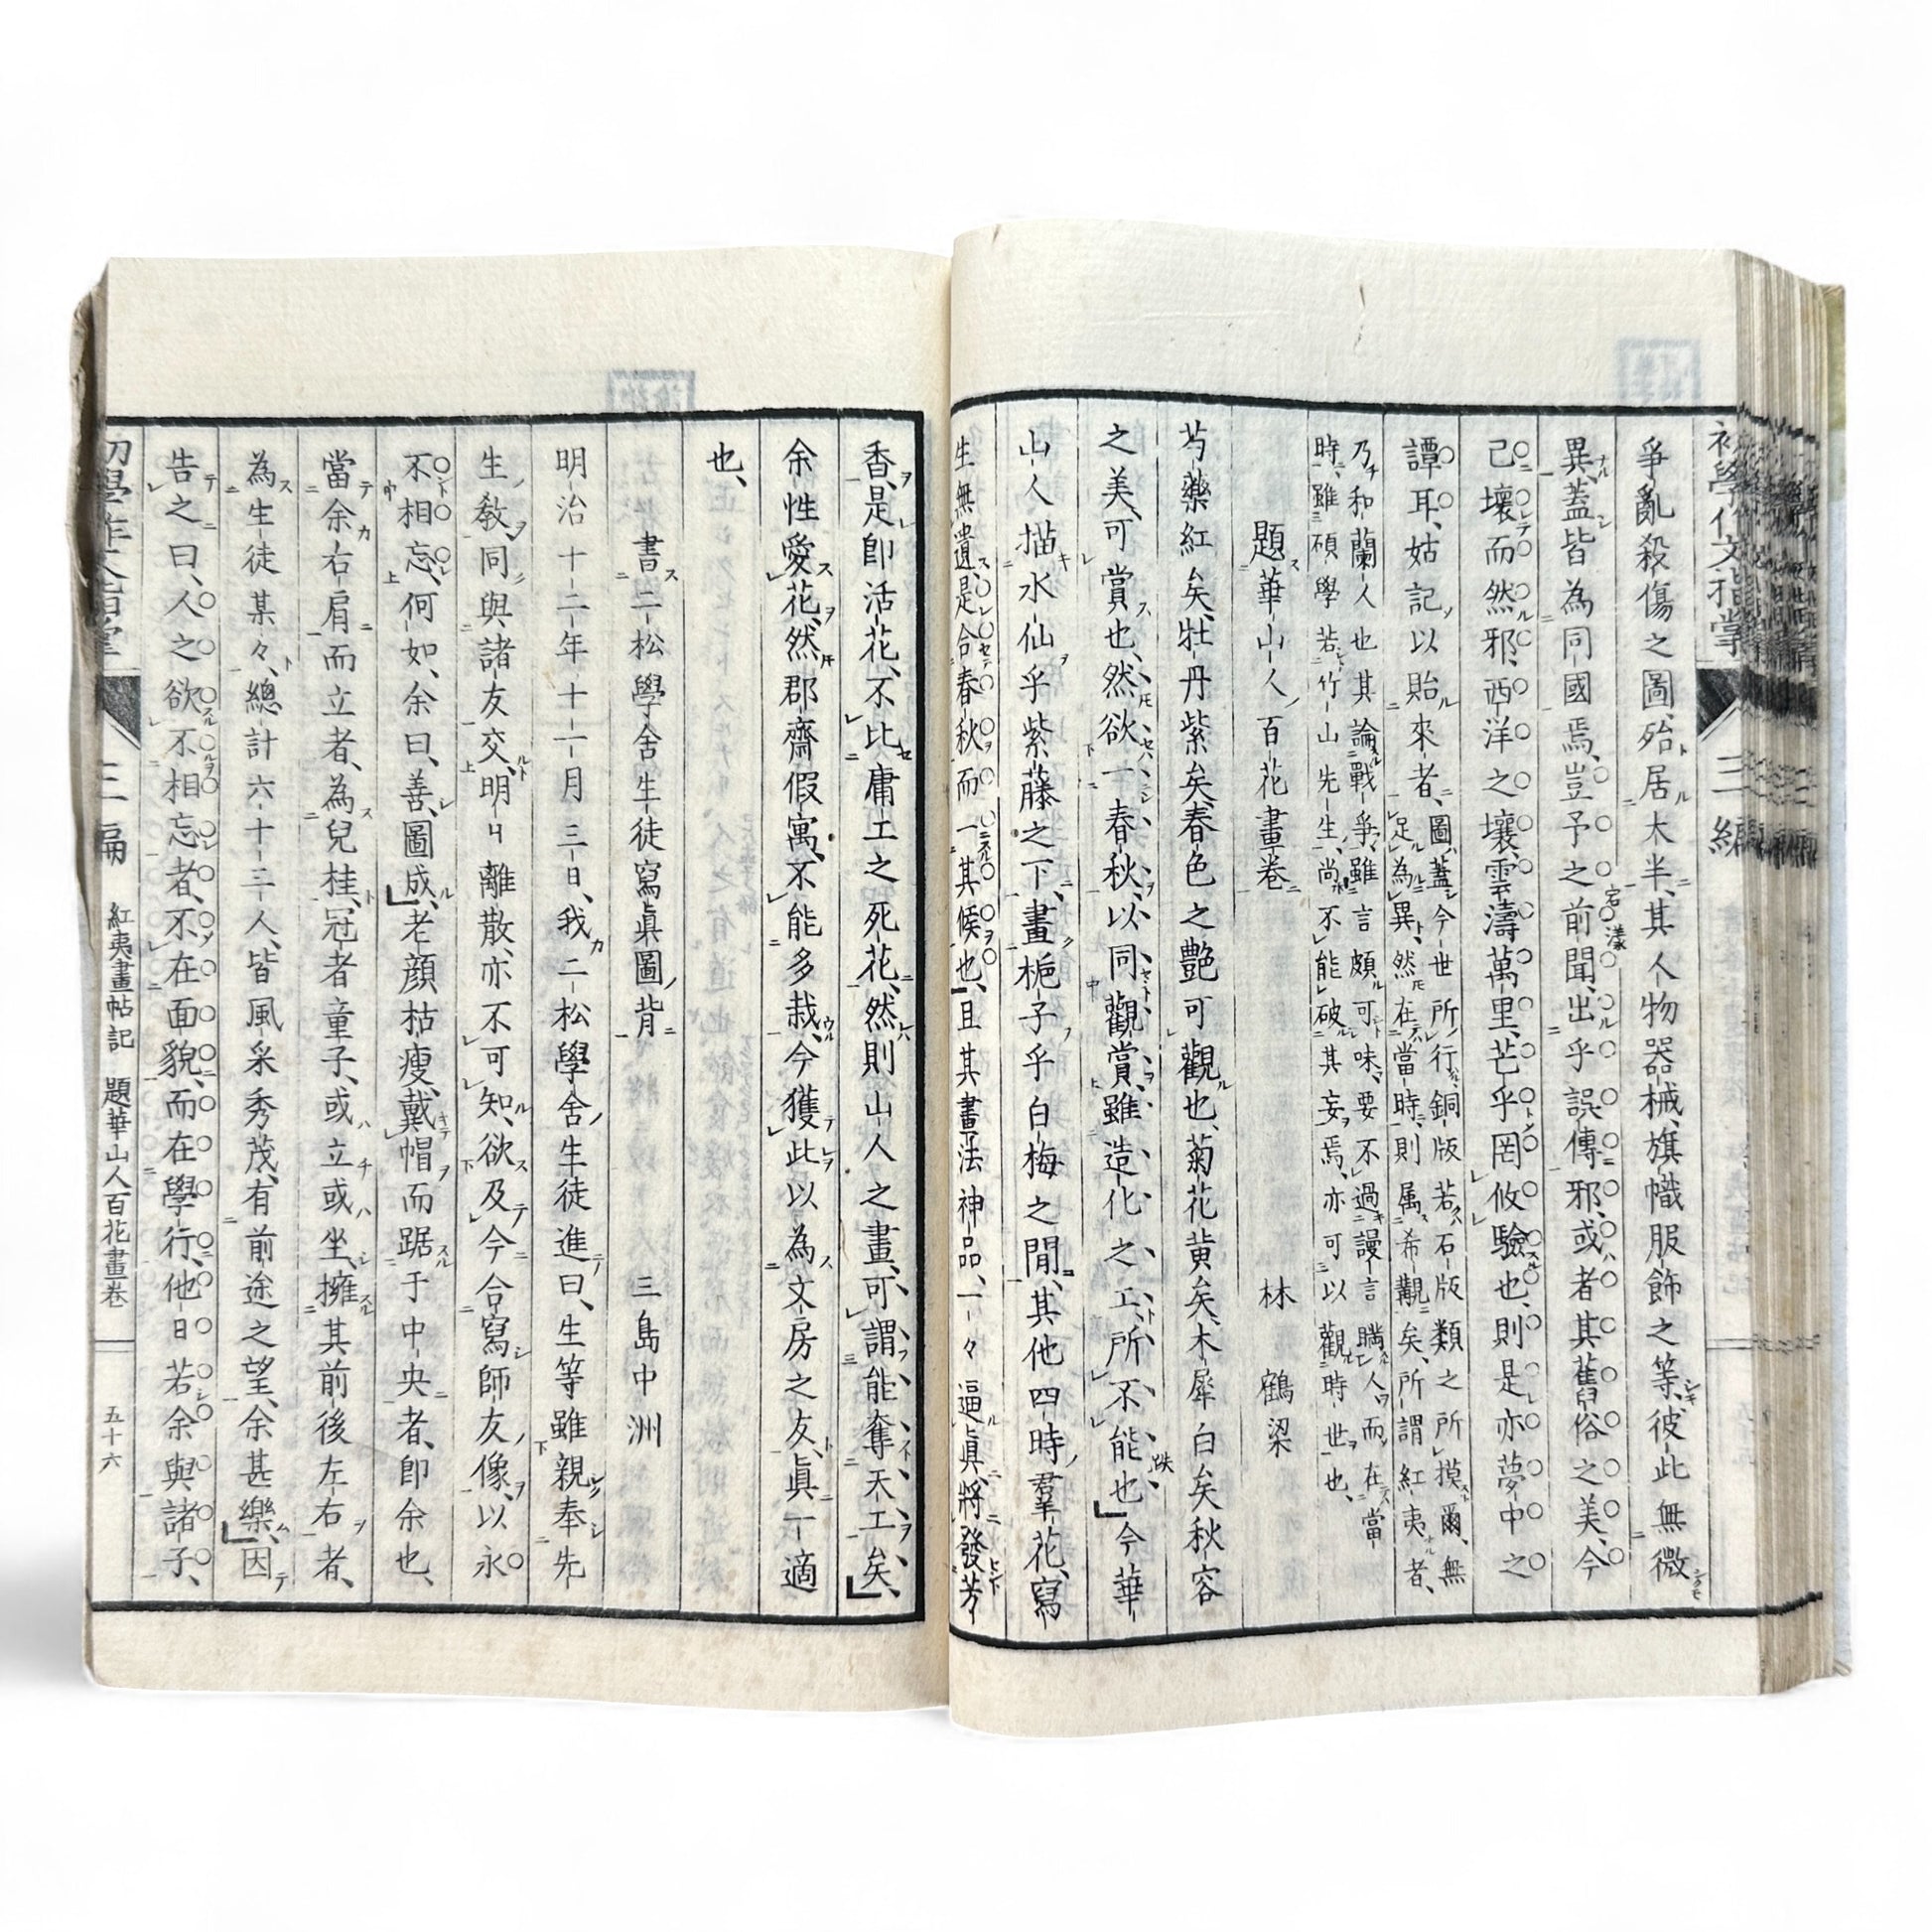 爭亂殺傷之圖、殆居木半、其人物器械、旗幟服飾之等、彼此無微
異、蓋皆為同國焉、豈予之前聞、出乎誤傳邪、或者其舊俗之美、今
己壞而然邪、西洋之壞、雲濤萬里、芒乎罔攸驗也、則是亦夢中之
譚耳、姑記以貽來者、
圖蓋今世所行、銅版若石版類之所摸爾、無
足為異、然在當時、則属希覯矣、所謂紅夷者、
乃和蘭人也其論戰爭、雖言頗可味、要不過謾言瞞人、而在當
時、雖碩學若竹山先生、尚不能破其妄焉、亦可以觀時世也、
題華山人百花畫卷
林鶴梁
芍藥紅矣、牡丹紫矣、春色之艷可觀也、菊花黄矣、木犀白矣秋容
之美、可賞也、然欲一春秋、以同觀賞、雖造化之工、所不能也、今華
山人描水仙乎紫藤之下、畫梔子乎白梅之間、其他四時羣花、寫
生無遺、是合春秋而一其候也、且其畫法神品、一々逼眞、將發芳
香、是卽活花、不比庸工之死花、然則山人之畫、可謂能奪天工矣、
余性愛花、然郡齋假寓、不能多栽、今獲此以為文房之友、眞一適
也、
書二松學舍生徒寫眞圖背
三島中洲
明治十二年十一月三日、我二松學舍生徒進曰、生等雖親奉先
生教、同與諸友交、明日離散、亦不可知、欲及今合寫師友像、以永
不相忘、何如、余曰、善、圖成、老顔枯瘦、戴帽而踞于中央者、卽余也、
當余右肩而立者、為兒桂、冠者童子、或立或坐、擁其前後左右者、
為生徒某々、總計六十三人、皆風采秀茂、有前途之望、余甚樂、因
告之曰、人之欲不相忘者、不在面貌、而在學行、他日若余與諸子、
初學作文指掌
三編
紅夷畫帖記
題華山人百花畫卷
五十六